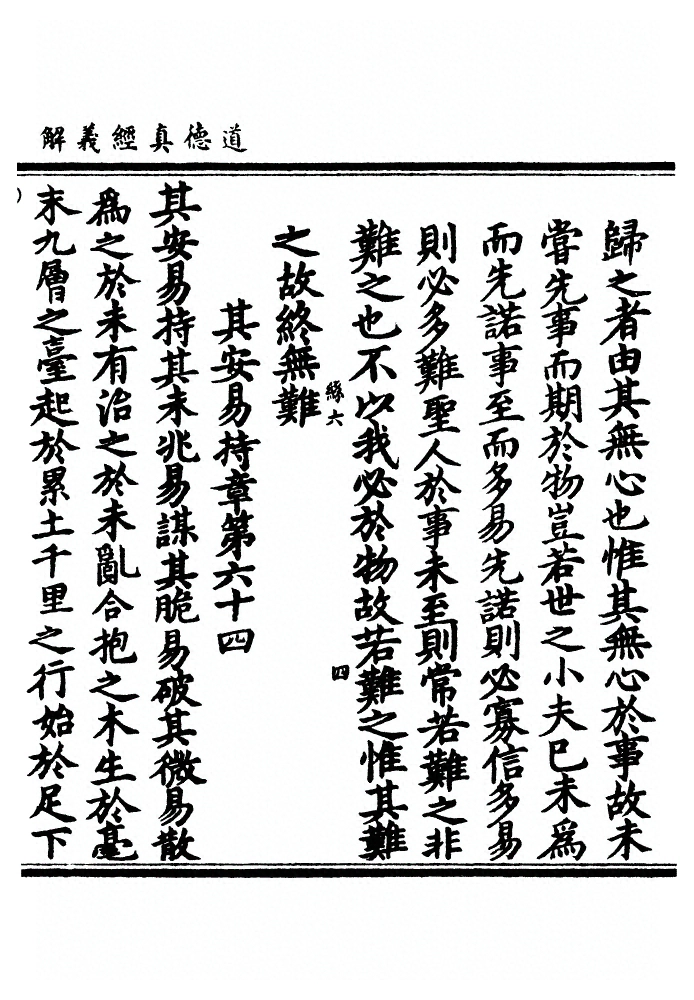 道德真經義解
歸之者由其無心也惟其無心於事故未
嘗先事而期於物豈若世之小夫已未爲
而先諾事至而多易先諾則必寡信多易
則必多難聖人於事未至則常若難之非
難之也不以我必於物故若難之惟其難
之故終無難
絲六
四
其安易持章第六十四
其安易持其未兆易謀其脆易破其微易散
爲之於未有治之於未亂合抱之木生於毫
末九層之臺起於累土千里之行始於足下